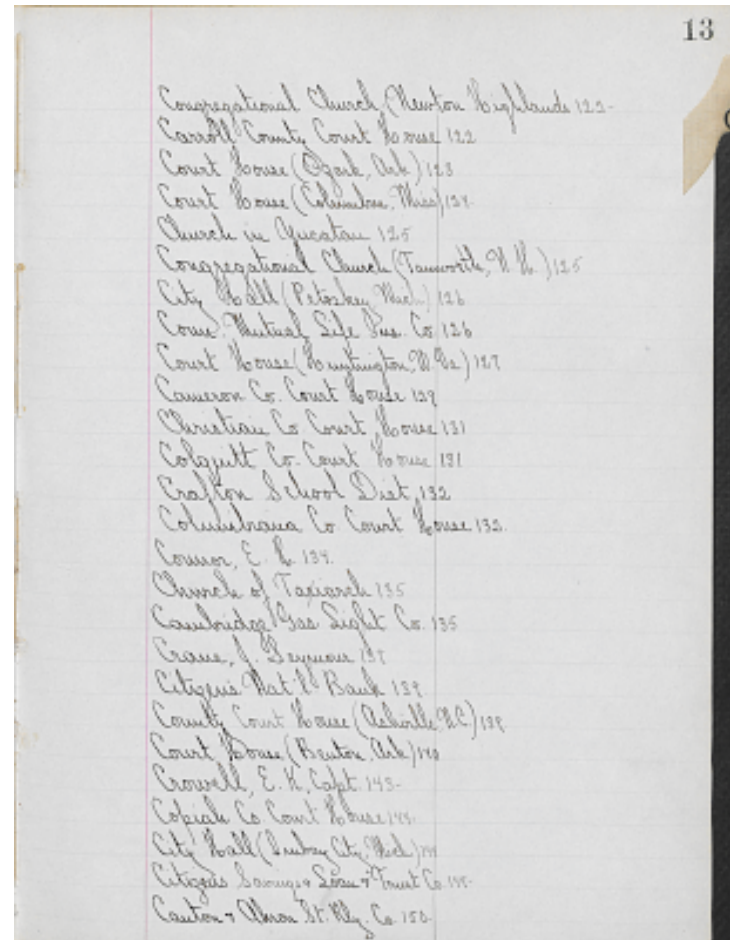 13
Congregational Church, Newton Highlands 122-
Carroll County Court House 122
Court House (Ozark, Ark.) 123
Court House (Columbus, Miss) 124.
Church in Yucatan 125
Congregational Church (Tamworth, N. H.) 125
City Hall (Petoskey, Mich.) 126
Conn. Mutual Life Ins. Co. 126
Court House (Huntington, W. Va.) 127
Cameron Co. Court House 129
Christian Co. Court House 131
Colquitt Co. Court House 131
Crafton School Dist. 132
Columbiana Co. Court House 133.
Connor, E. 134.
Church of Taxiarch 135
Cambridge Gas Light Co. 135
Crane, J. Seymour 137
Citizens Nat'l Bank 139
County Court House (Asheville, N.C.) 139
Court House (Benton, Ark) 140
Crowell, E. K. Capt. 143-
Copiah Co. Court House 144.
City Hall (City, Mich.)
Citizens Savings & Loan & Trust Co.
Canton & Akron St. Rly. Co. 150-